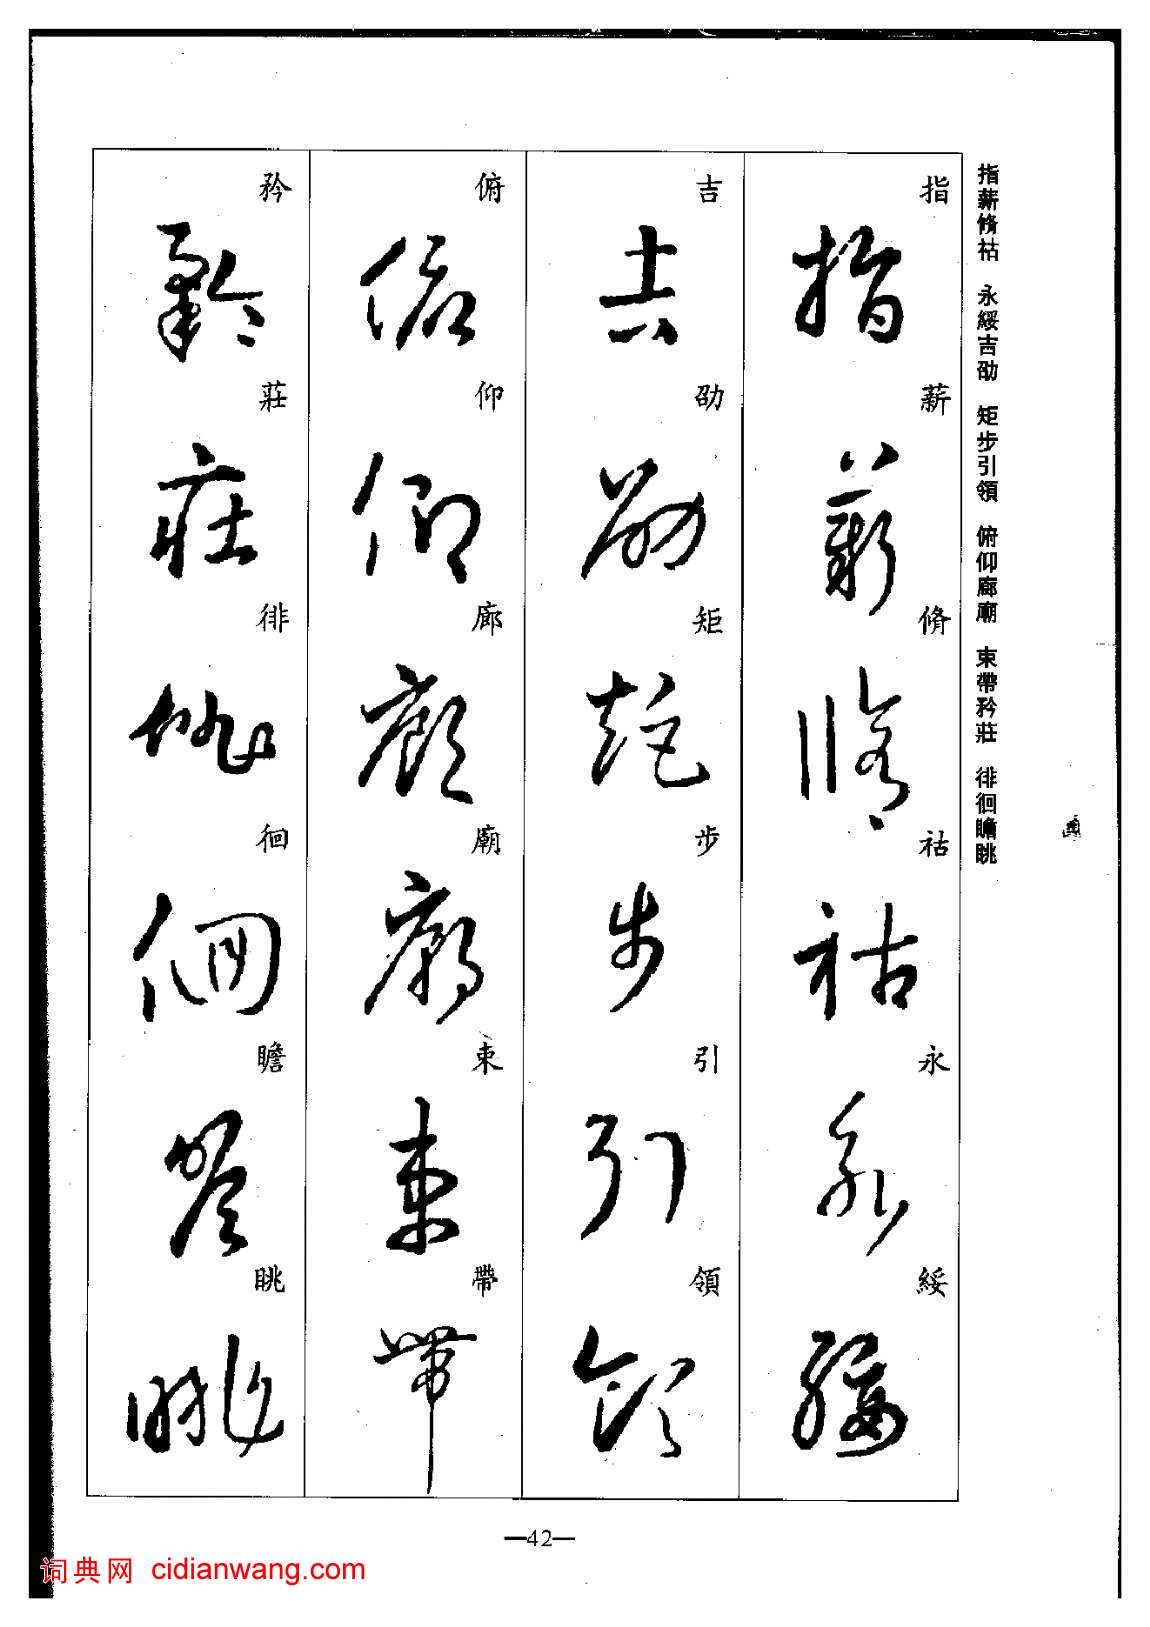 指薪脩祜 永綏吉劭 矩步引領 俯仰廊廟 束帶矜莊 徘徊瞻眺
指薪脩祜永綏
吉劭矩步引領
俯仰廊廟束帶
矜莊徘徊瞻眺
—42—
词典网 cidianwang.com